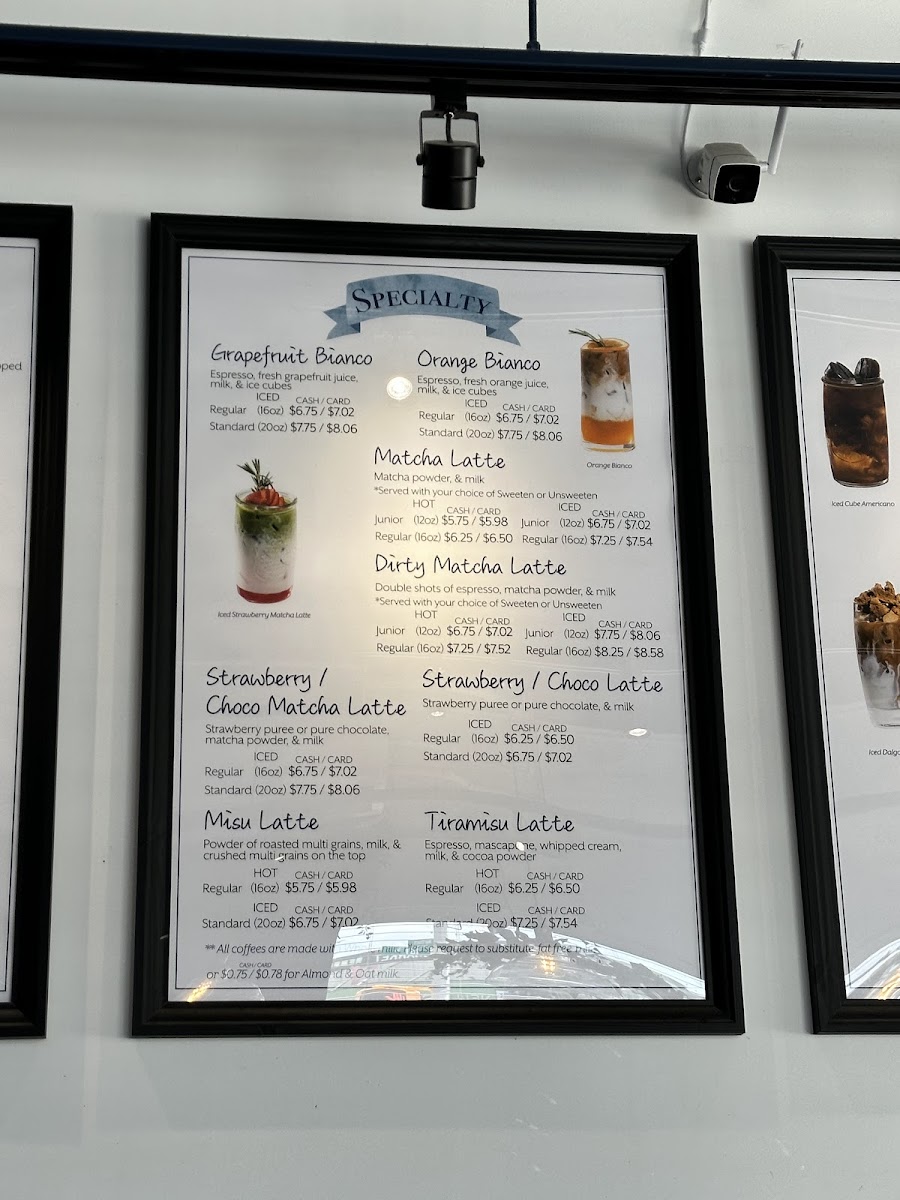 pped
SPECIALTY
Grapefruit Bianco
Espresso, fresh grapefruit juice,
milk, & ice cubes
ICED CASH / CARD
Regular (16oz) $6.75 / $7.02
Standard (20oz) $7.75 / $8.06
Orange Bianco
Espresso, fresh orange juice,
milk, & ice cubes
ICED CASH / CARD
Regular (16oz) $6.75 / $7.02
Standard (20oz) $7.75 / $8.06
Orange Bianco
Matcha Latte
Matcha powder, & milk
*Served with your choice of Sweeten or Unsweeten
HOT CASH / CARD ICED CASH / CARD
Junior (12oz) $5.75 / $5.98 Junior (12oz) $6.75 / $7.02
Regular (16oz) $6.25 / $6.50 Regular (16oz) $7.25 / $7.54
Iced Strawberry Matcha Latte
Dirty Matcha Latte
Double shots of espresso, matcha powder, & milk
*Served with your choice of Sweeten or Unsweeten
HOT CASH / CARD ICED CASH / CARD
Junior (12oz) $6.75 / $7.02 Junior (12oz) $7.75 / $8.06
Regular (16oz) $7.25 / $7.52 Regular (16oz) $8.25 / $8.58
Strawberry /
Choco Matcha Latte
Strawberry puree or pure chocolate,
matcha powder, & milk
ICED CASH / CARD
Regular (16oz) $6.75 / $7.02
Standard (20oz) $7.75 / $8.06
Strawberry / Choco Latte
Strawberry puree or pure chocolate, & milk
ICED CASH / CARD
Regular (16oz) $6.25 / $6.50
Standard (20oz) $6.75 / $7.02
Misu Latte
Powder of roasted multi grains, milk, &
crushed multi grains on the top
HOT CASH / CARD
Regular (16oz) $5.75 / $5.98
ICED CASH / CARD
Standard (20oz) $6.75 / $7.02
Tiramisu Latte
Espresso, mascapone, whipped cream,
milk, & cocoa powder
HOT CASH / CARD
Regular (16oz) $6.25 / $6.50
ICED CASH / CARD
Standard (20oz) $7.25 / $7.54
** All coffees are made with milk. Please request to substitute fat free milk
CASH / CARD
or $0.75 / $0.78 for Almond & Oat milk
Iced Cube Americano
Iced Dalgo